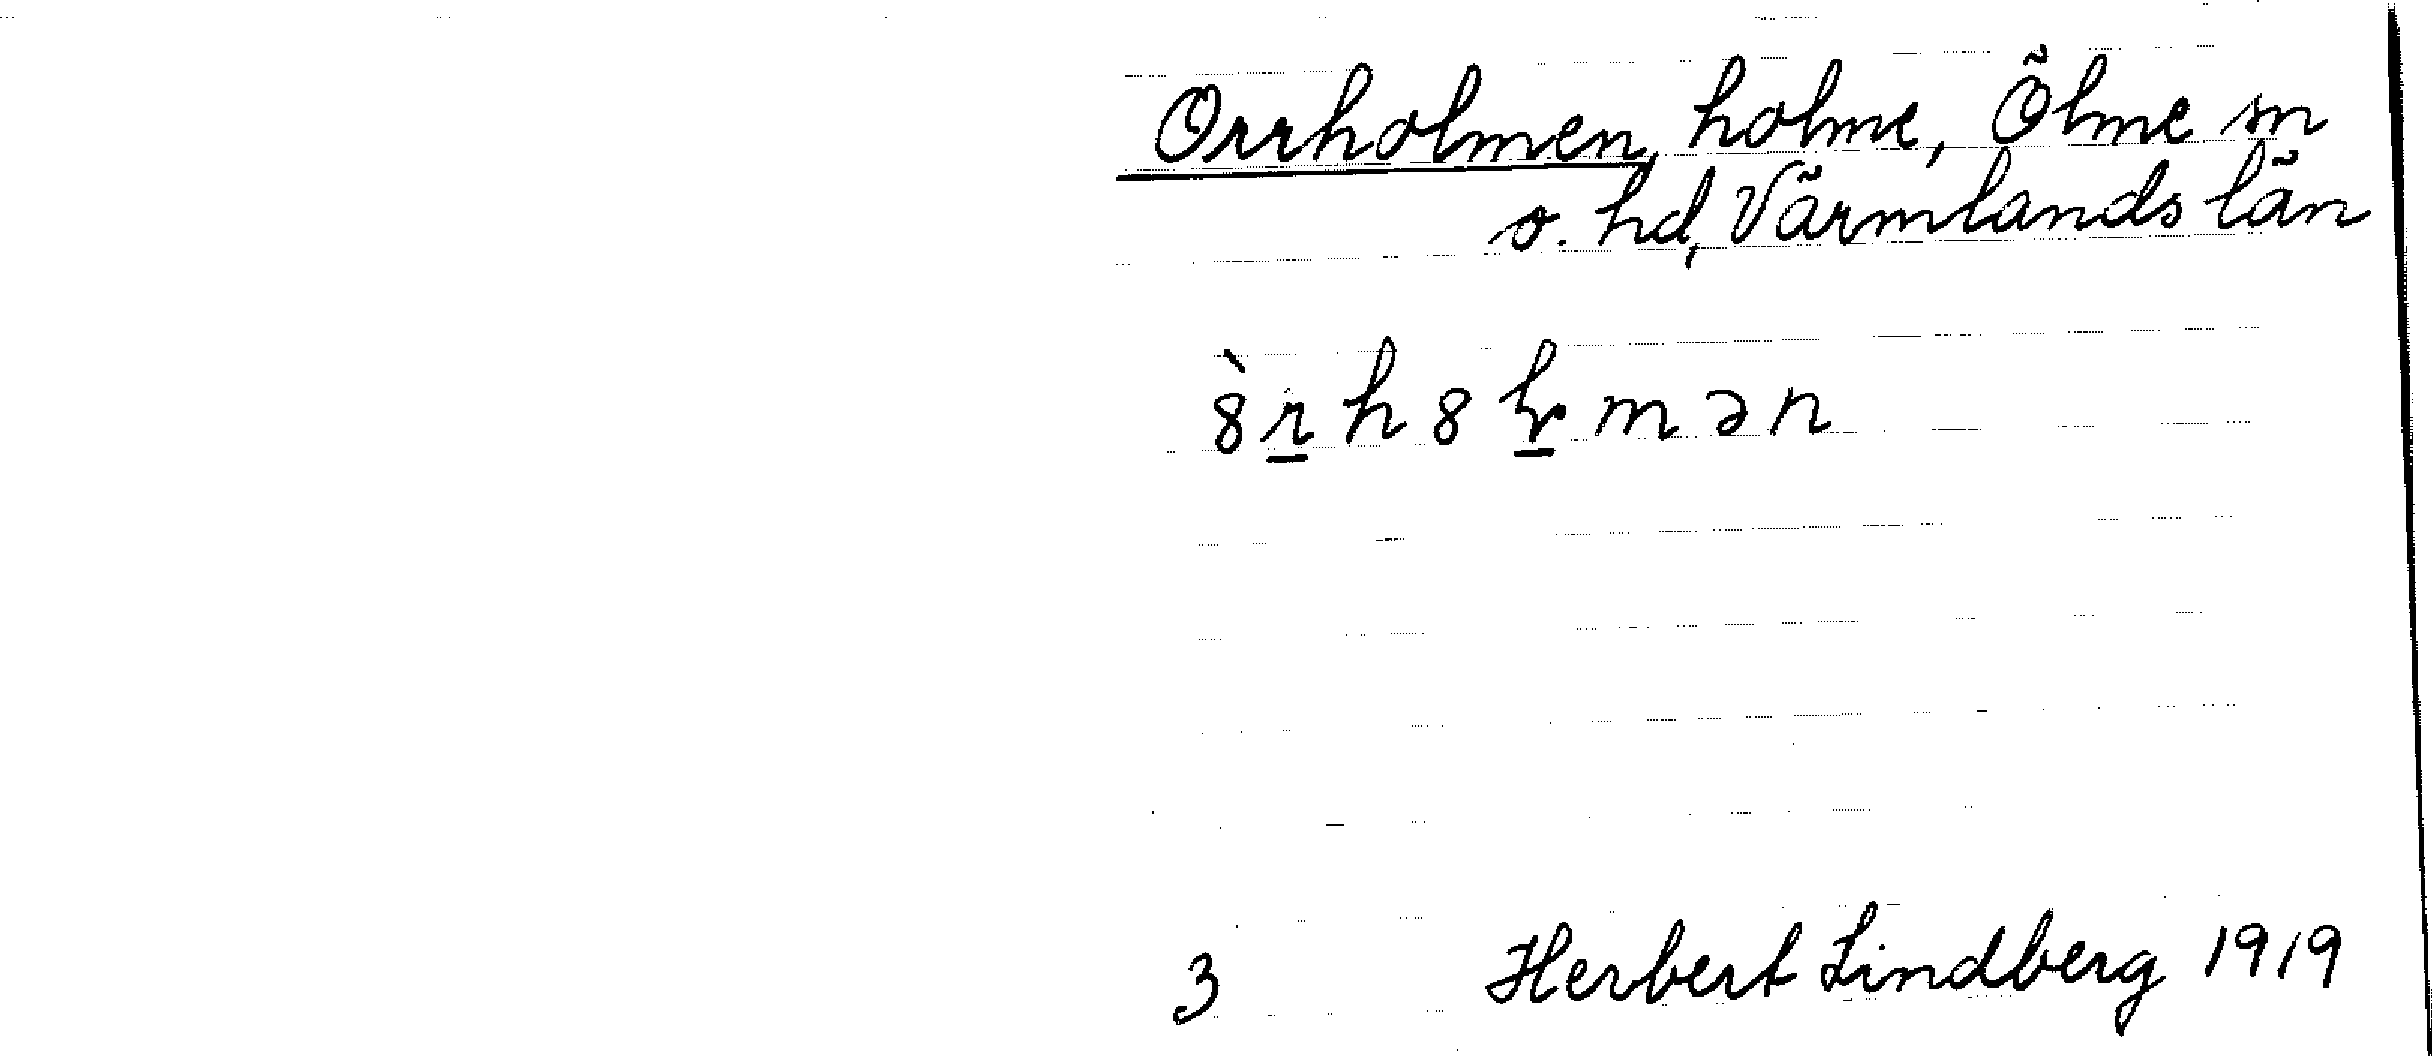 Orrholmen, holme, Ölme sn
o. hd, Värmlands län
8̀r̲h8ɽ̲mən
3 Herbert Lindberg 1919